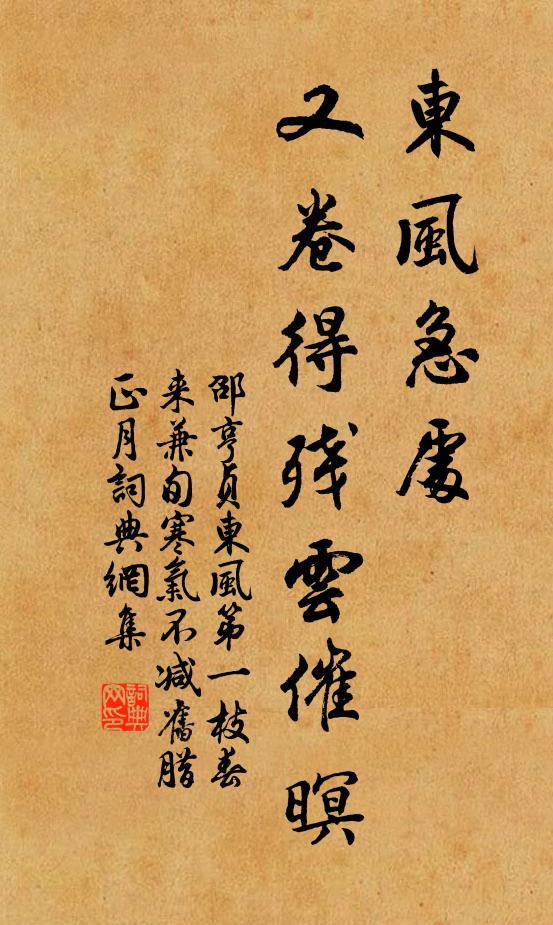 東風急處
又卷得残雲催暝
邵亨貞東風第一枝春
来兼旬寒氣不减舊腊
正月詞典網集
詞典网印